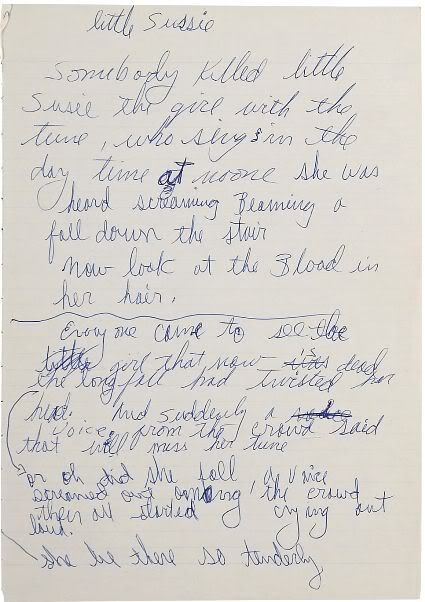 little Sussie
Somebody Killed little
Susie the girl with the
tune, who sings in the
day time at noone she was
heard screaming Beaming a
fall down the stair
Now look at the Blood in
her hair.
Every one came to see the
girl that now is dead
the long fall had twisted her
And suddenly a
Voice from the crowd said
that will miss her tune
or oh did she fall a Voice
screamed out among the crowd
then all started crying out
loud.
she lie there so tenderly